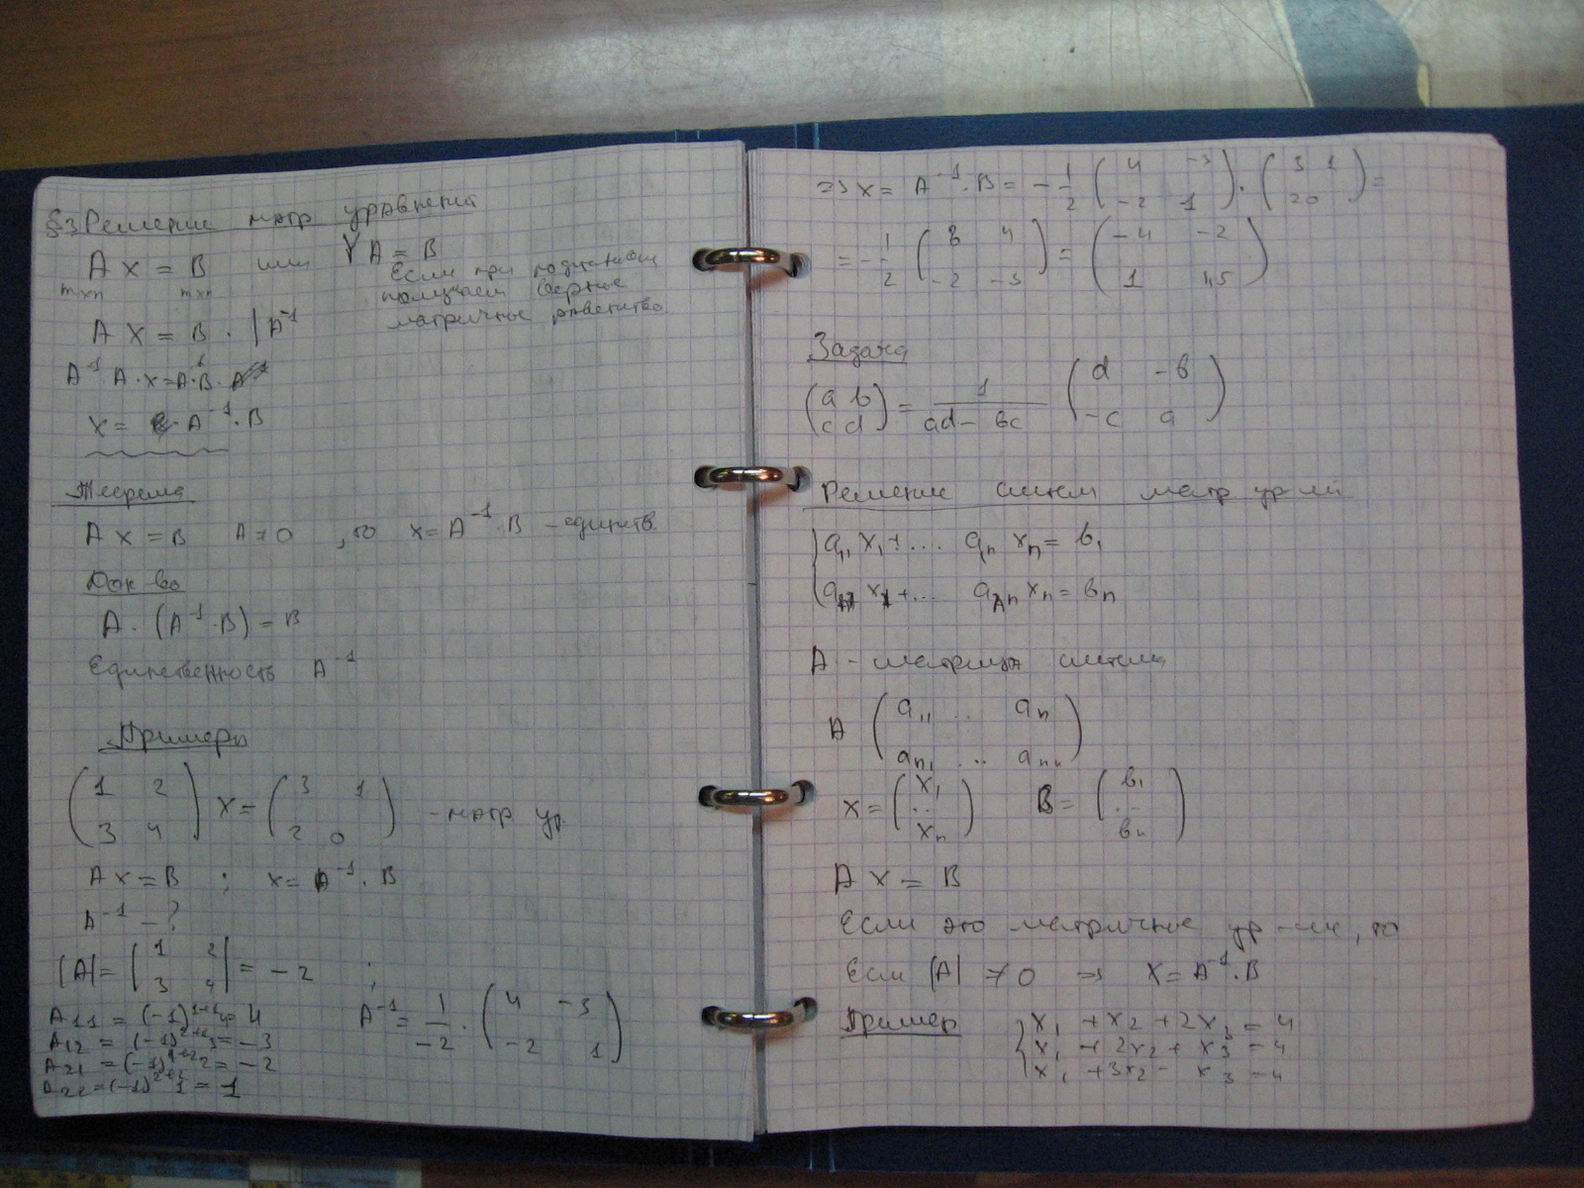 §3 Решение матр уравнений
A x = B или YA = B
mxn mxn
Если при подстановк
получаем верное
матричное равенство
A X = B · | A⁻¹
A⁻¹ A · x = A⁻¹ · B ·
x = A⁻¹ · B
Теорема
A x = B A ≠ 0 , то x = A⁻¹ · B – единств.
Док во
A · (A⁻¹ · B) = B
Единственность A⁻¹
Примеры
(1 2
3 4) X = (3 1
2 0) – матр ур.
A x = B ; x = A⁻¹ · B
A⁻¹ – ?
|A| = |1 2
3 4| = – 2 ;
A₁₁ = (-1)¹⁺¹ 4 = 4
A₁₂ = (-1)²⁺¹ 3 = – 3
A₂₁ = (-1)¹⁺² 2 = – 2
A₂₂ = (-1)²⁺² 1 = 1
A⁻¹ = 1/-2 · (4 -3
-2 1)
=> x = A⁻¹ · B = - 1/2 (4 -3
-2 1) · (3 1
2 0) =
= - 1/2 (8 4
-2 -3) = (-4 -2
1 1,5)
Задача
(a b
c d) = 1/(ad - bc) (d -b
-c a)
Решение систем матр ур-ий
{a₁₁ x₁ + .... a₁ₙ xₙ = b₁
x₁ + ... xₙ = bₙ
A – матрица системы
A (a₁₁ .. a₁ₙ
aₙ₁ ... aₙₙ)
X = (x₁
..
xₙ) B = (b₁
..
bₙ)
A x = B
Если это матричное ур-ие, то
Если |A| ≠ 0 => X = A⁻¹ · B
Пример {x₁ + x₂ + 2x₃ = 4
x₁ + 2x₂ + x₃ = 4
x₁ + 3x₂ - x₃ = 4